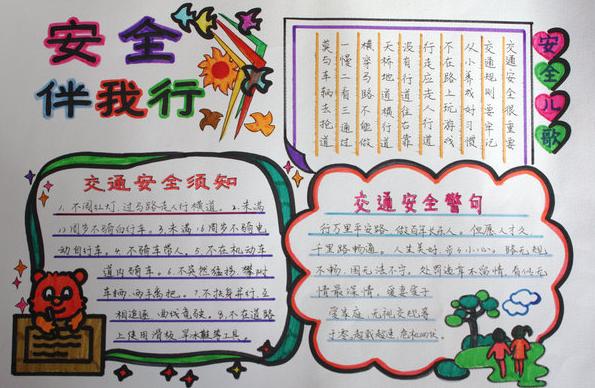 安全
伴我行
安全儿歌
交通安全很重要
交通规则要牢记
从小养成好习惯
不在路上玩游戏
行走应走人行道
没有行道往右靠
天桥地道横行道
横穿马路不能做
一慢二看三通过
莫与车辆去抢道
交通安全须知
1.不闯红灯,过马路走人行横道。2.未满
12周岁不骑自行车。3.未满16周岁不骑电
动自行车。4.不骑车带人。5.不在机动车
道内骑车。6.不突然猛拐、攀附
车辆、两手离把。7.不扶身并行、互
相追逐、曲线竞驶。8.不在道路
上使用滑板、旱冰鞋等工具。
交通安全警句
行万里平安路 做百年长存人。但愿人才久
千里路畅通。人生美好,步步小心。路无规
不畅 国无法不守。处罚违章不留情,看似无
情最深情。爱妻爱子
爱家庭 无视交规等
于零.超载越速 危机四伏